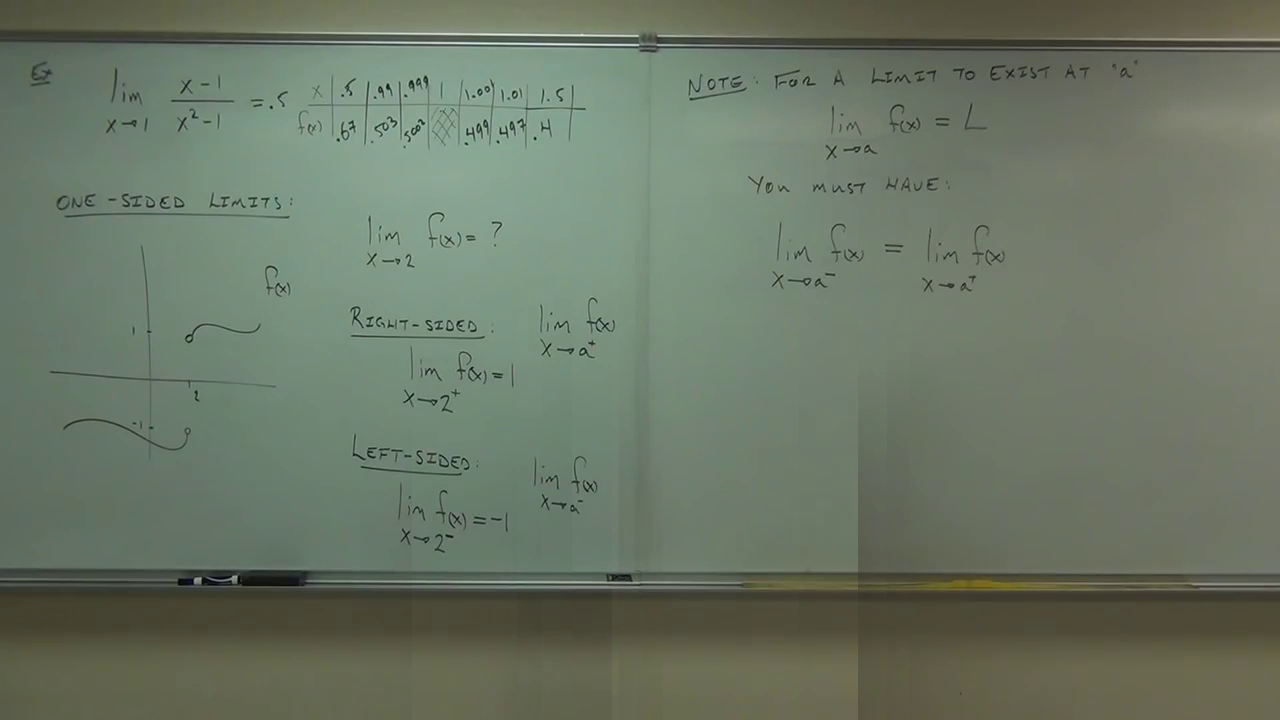 Ex lim x→1 x-1 / x²-1 = .5
x | .5 | .99 | .999 | 1 | 1.001 | 1.01 | 1.5
f(x) | .67 | .503 | .5003 | | .499 | .497 | .4
ONE-SIDED LIMITS:
lim x→2 f(x) = ?
f(x)
1
2
-1
RIGHT-SIDED: lim x→a⁺ f(x)
lim x→2⁺ f(x) = 1
LEFT-SIDED: lim x→a⁻ f(x)
lim x→2⁻ f(x) = -1
NOTE: FOR A LIMIT TO EXIST AT "a"
lim x→a f(x) = L
YOU MUST HAVE:
lim x→a⁻ f(x) = lim x→a⁺ f(x)